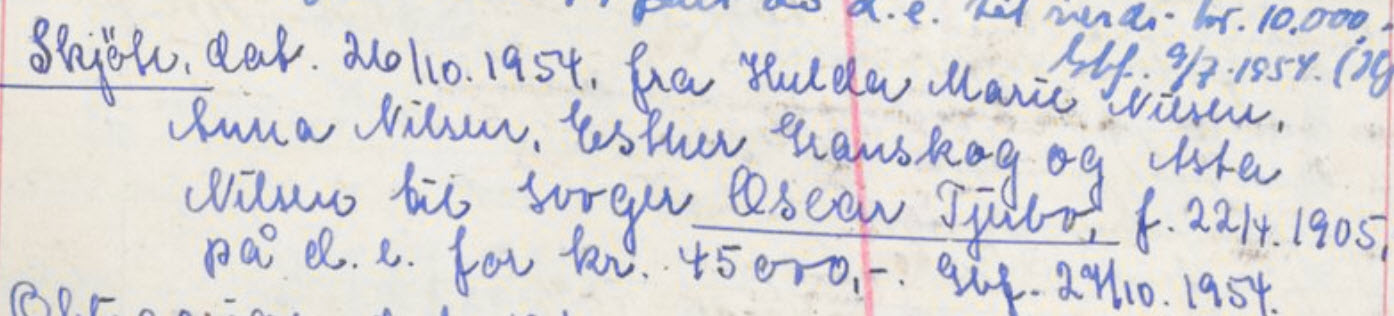 d.e. til verdi kr. 10.000,-
Gbf. 9/7-1954. (
Skjöte, dat. 26/10.1954, fra Hulda Marie Nilsen,
Anna Nilsen, Esther Granskog og Asta
Nilsen til svoger Oscar Tjubo, f. 22/4.1905,
på d.e. for kr. 45000,-. Gbf. 29/10.1954.